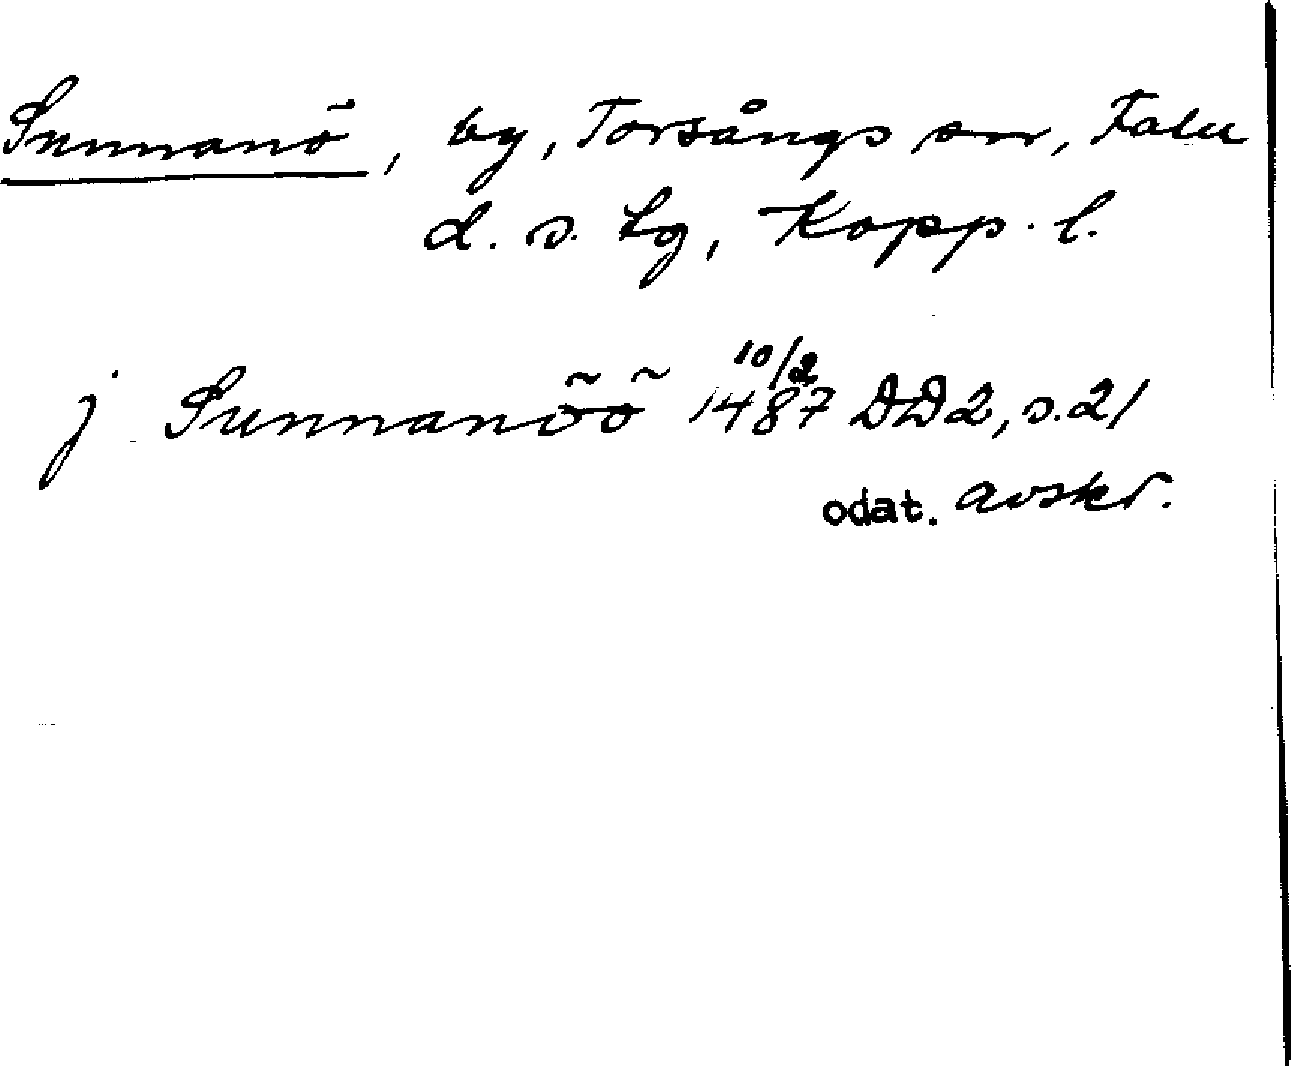 Sunnanö, by, Torsångs sn, Falu
d. s. tg, Kopp. l.
10/2
j Sunnanöö 1487 DD2, s. 21
odat. avskr.